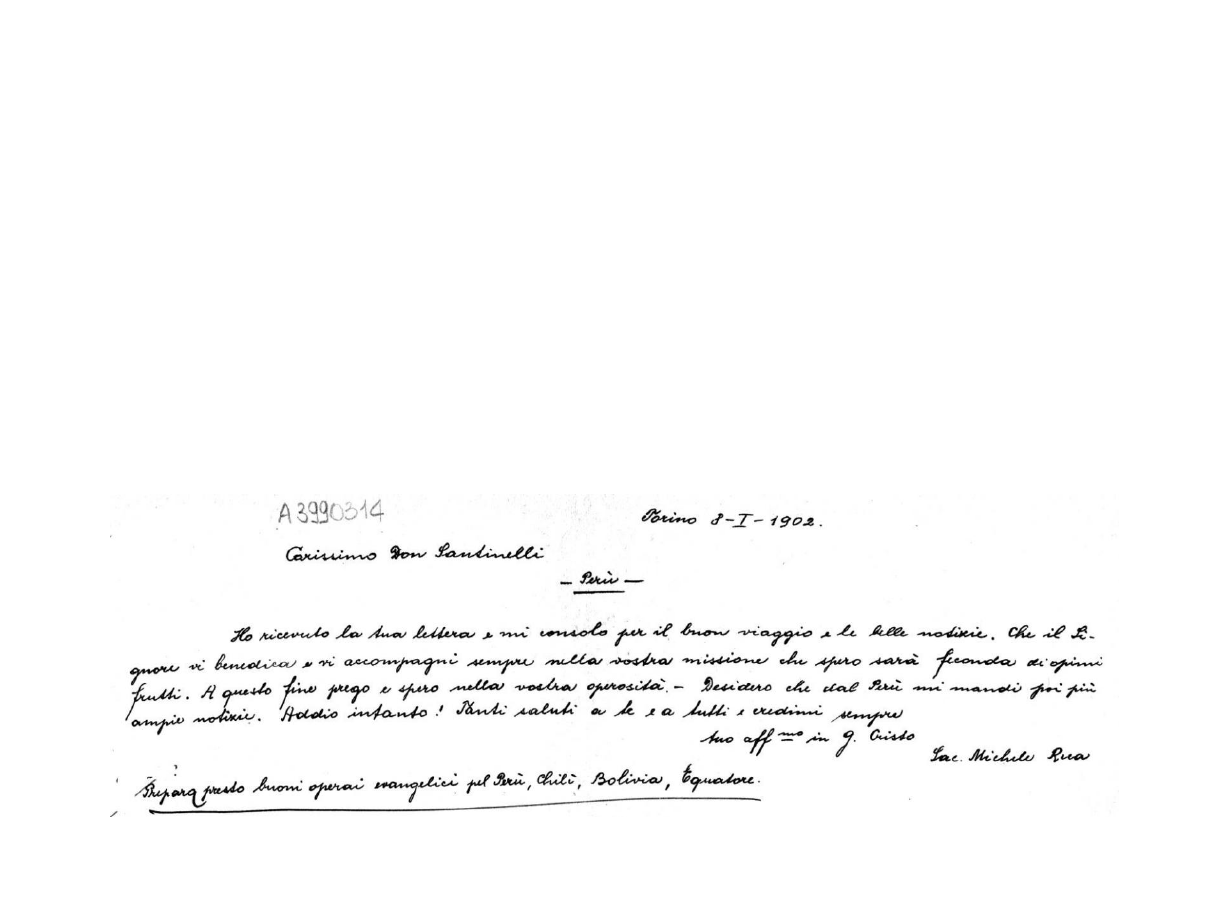 A3990314
Torino 8-I-1902.
Carissimo Don Santinelli
- Perù -
Ho ricevuto la tua lettera e mi consolo per il buon viaggio e le belle notizie. Che il Si-
gnore vi benedica e vi accompagni sempre nella vostra missione che spero sarà feconda di opimi
frutti. A questo fine prego e spero nella vostra operosità. - Desidero che dal Perù mi mandi poi più
ampie notizie. Addio intanto! Tanti saluti a te e a tutti e credimi sempre
tuo aff mo in G. Cristo
Sac. Michele Rua
Prepara presto buoni operai evangelici pel Perù, Chilì, Bolivia, Equatore.